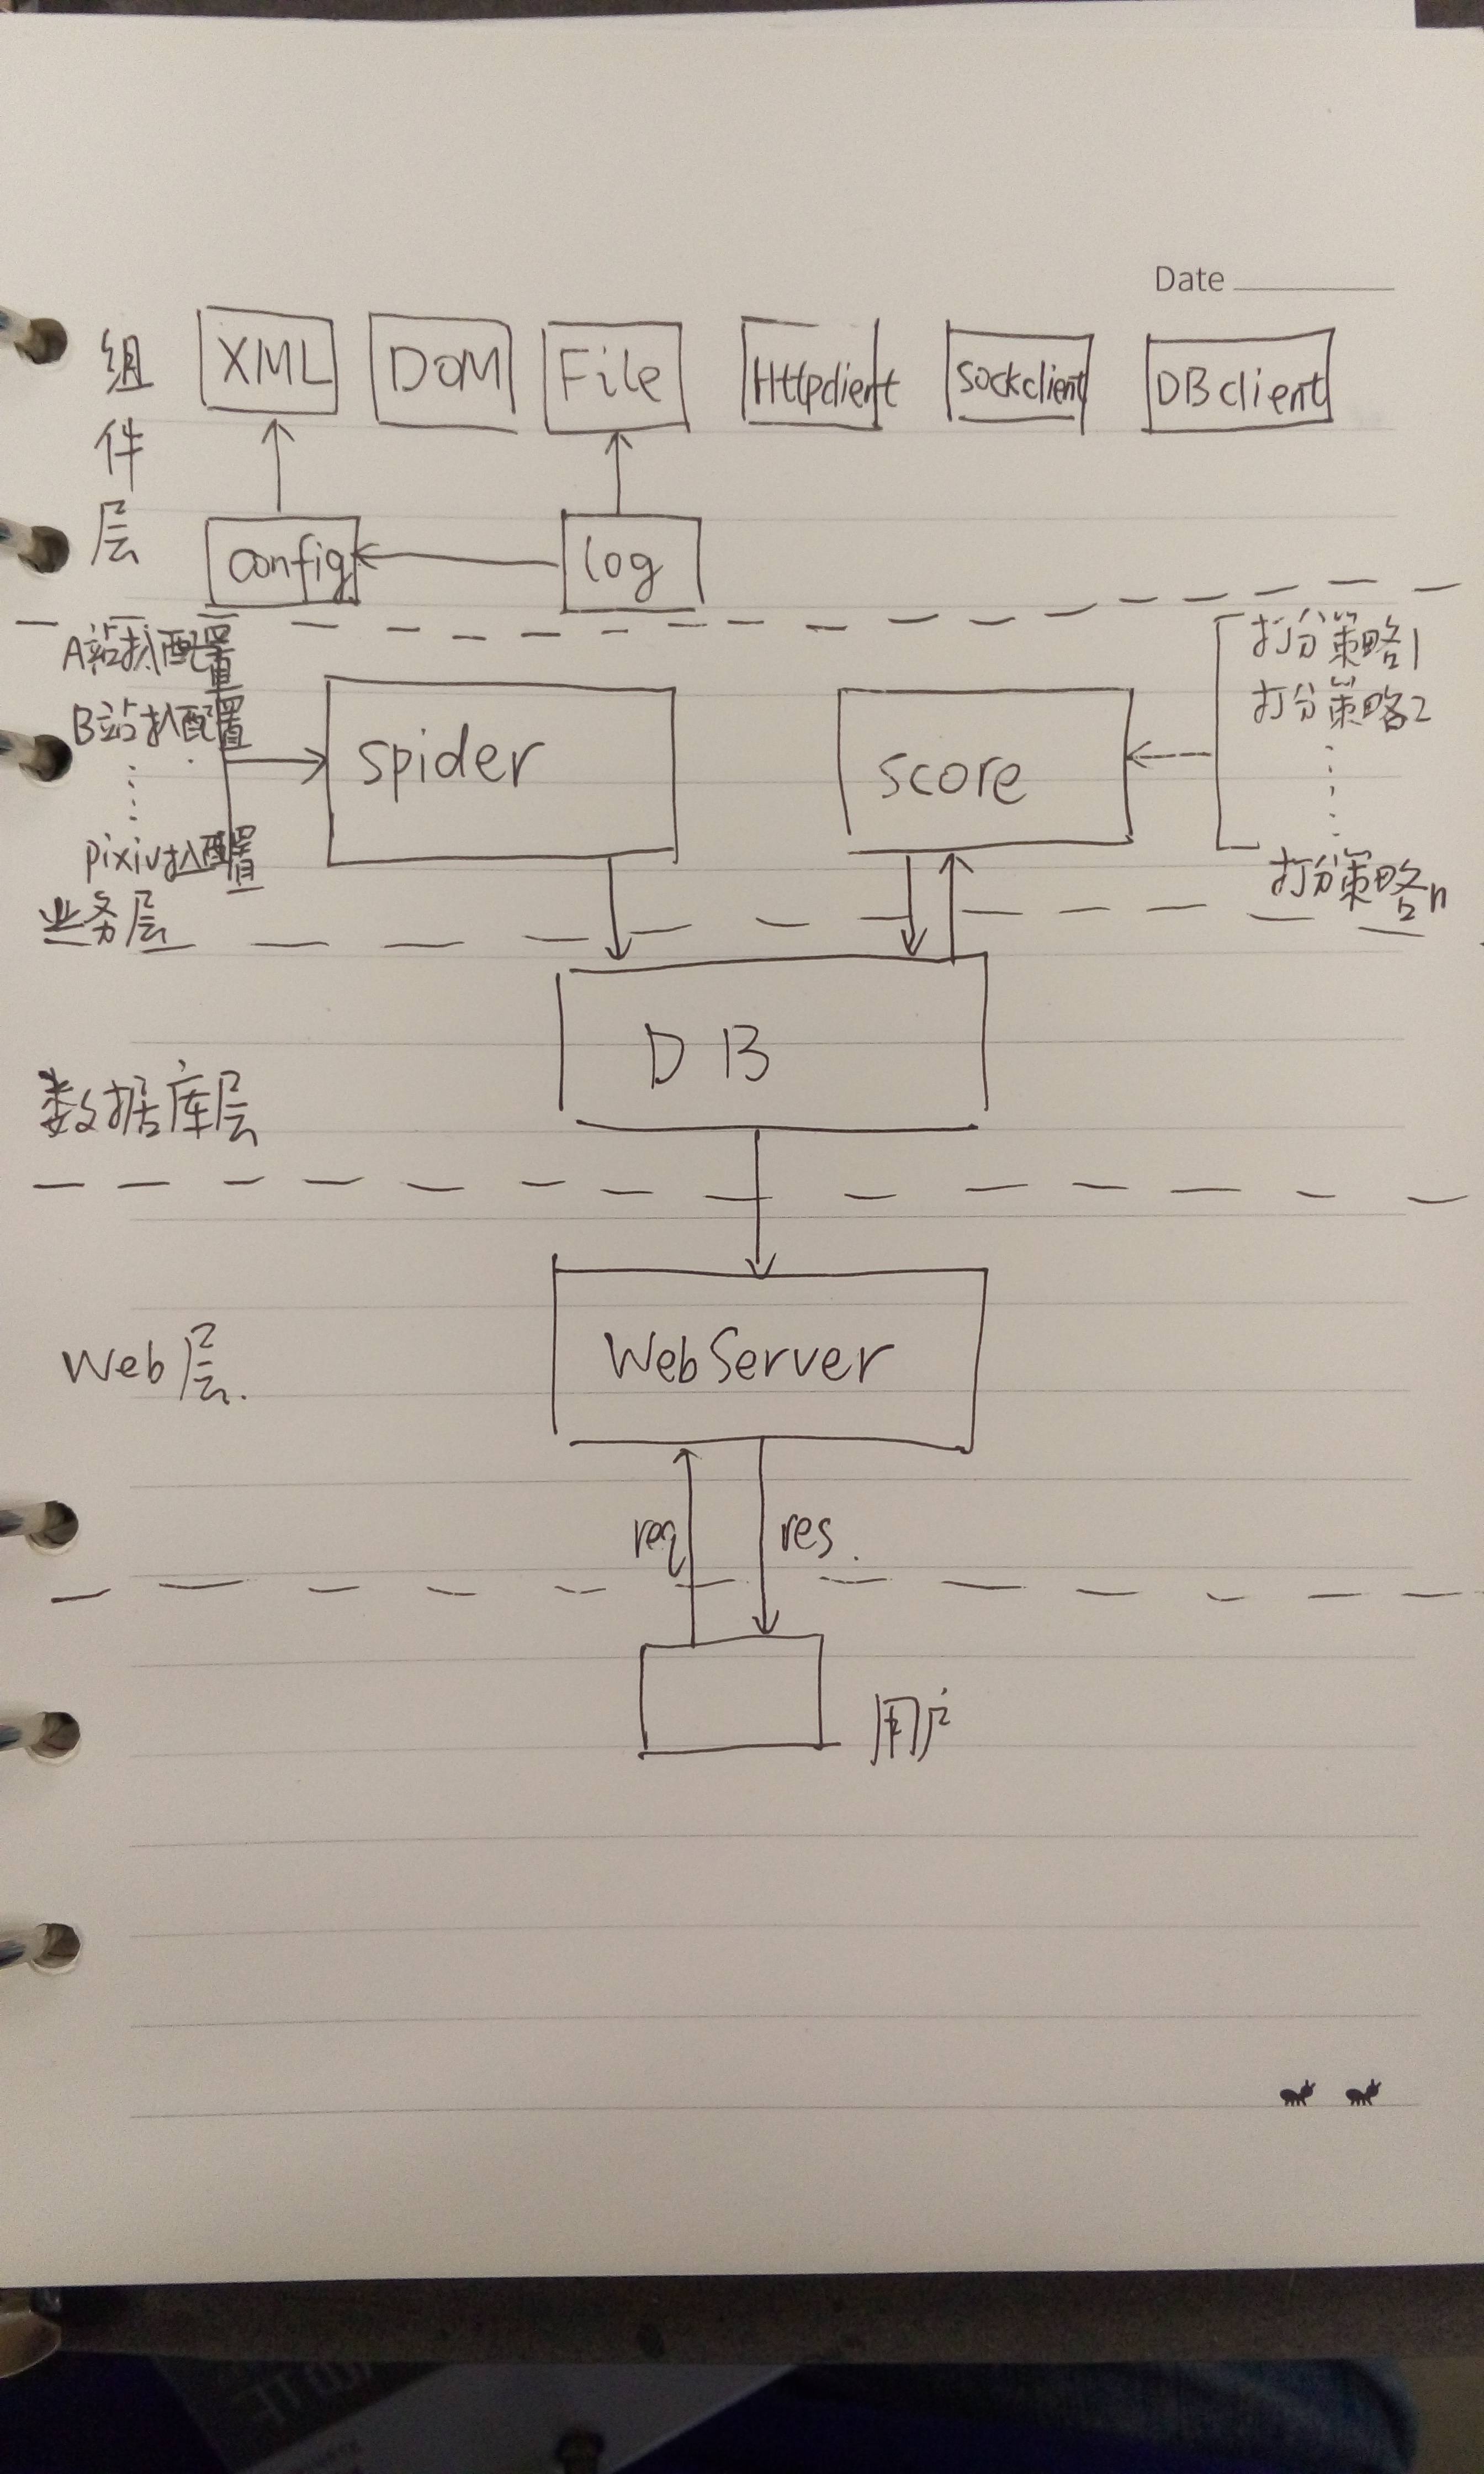 Date
组件层
XML
DOM
File
Httpclient
Sockclient
DBclient
config
log
A站扒配置
B站扒配置
pixiv扒配置
spider
score
打分策略1
打分策略2
打分策略n
业务层
DB
数据库层
Web层.
WebServer
req
res.
用户